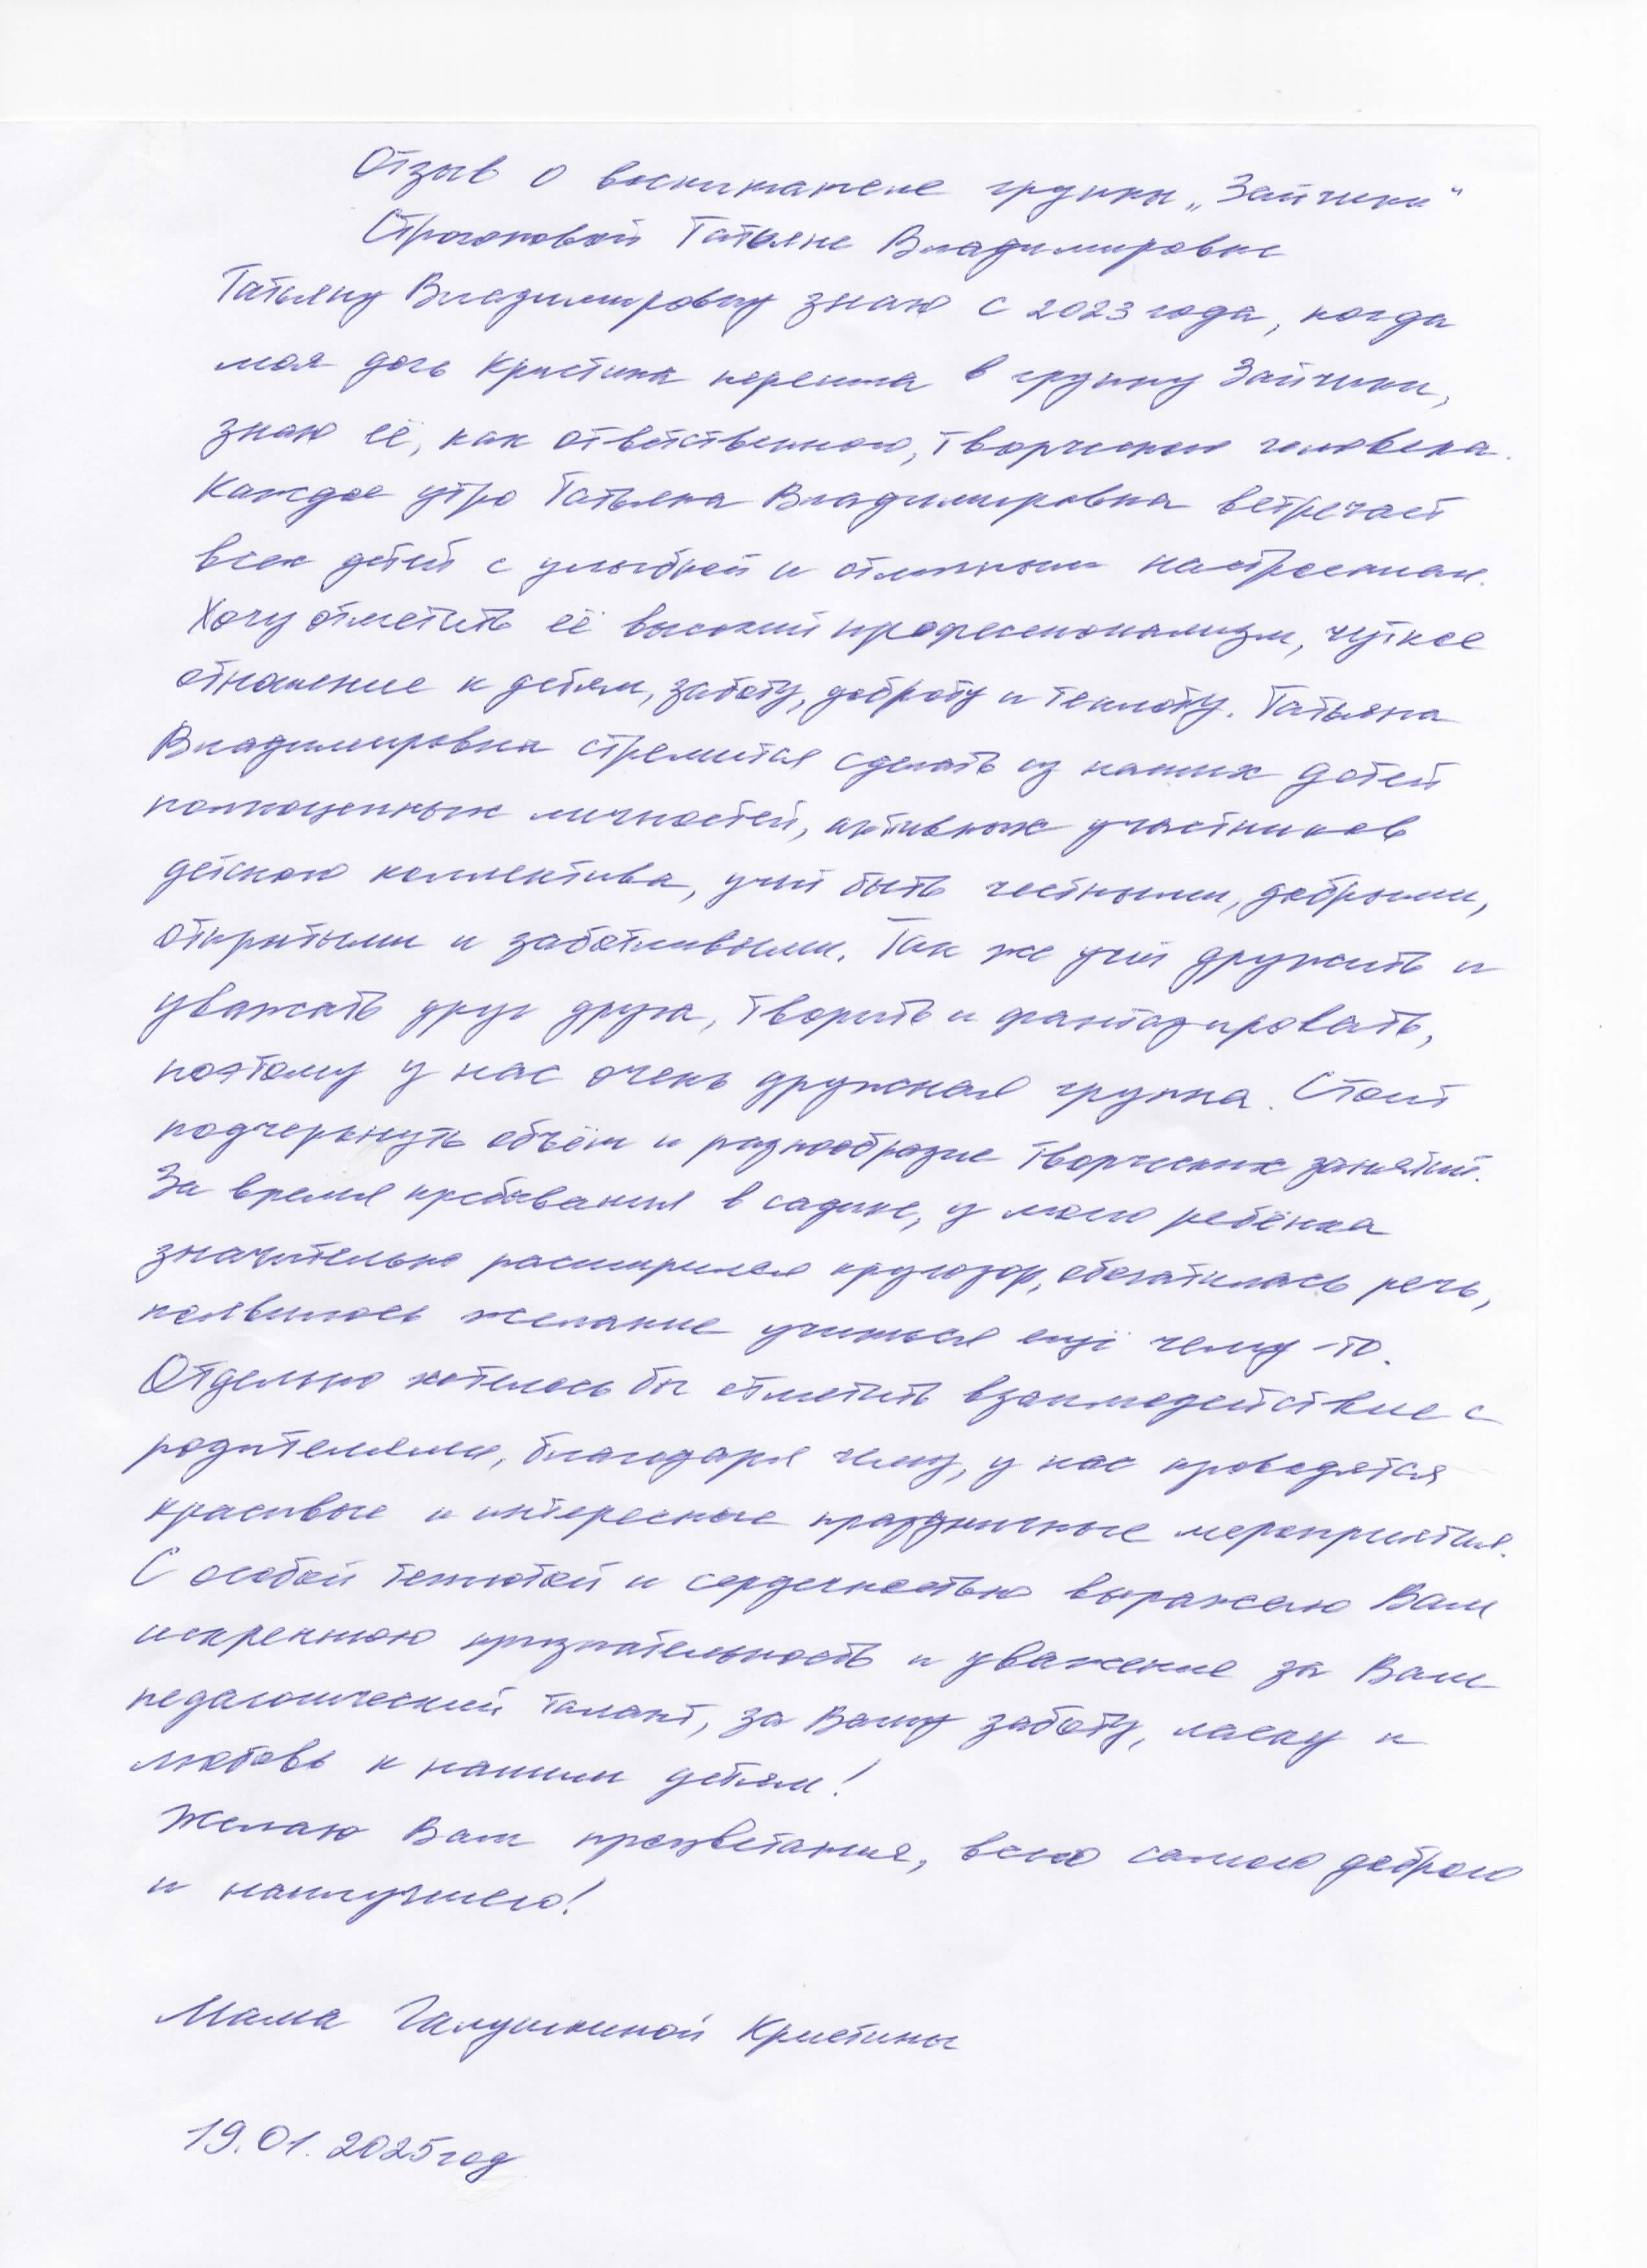 Отзыв о воспитателе группы „Зайчики"
Строгоновой Татьяне Владимировне
Татьяну Владимировну знаю с 2023 года, когда
моя дочь Кристина перешла в группу Зайчики,
знаю её, как ответственного, творческого человека.
Каждое утро Татьяна Владимировна встречает
всех детей с улыбкой и отличным настроением.
Хочу отметить её высокий профессионализм, чуткое
отношение к детям, заботу, доброту и теплоту. Татьяна
Владимировна стремится сделать из наших детей
полноценных личностей, активных участников
детского коллектива, учит быть честными, добрыми,
открытыми и заботливыми. Так же учит дружить и
уважать друг друга, творить и фантазировать,
поэтому у нас очень дружная группа. Стоит
подчеркнуть объём и разнообразие творческих занятий.
За время пребывания в садике, у моего ребёнка
значительно расширился кругозор, обогатилась речь,
появилось желание учиться ещё чему-то.
Отдельно хотелось бы отметить взаимодействие с
родителями, благодаря чему, у нас проводятся
красивые и интересные праздничные мероприятия.
С особой теплотой и сердечностью выражаю Вам
искреннюю признательность и уважение за Ваш
педагогический талант, за Вашу заботу, ласку и
любовь к нашим детям!
Желаю Вам процветания, всего самого доброго
и наилучшего!
Мама Галушкиной Кристины
19.01.2025год